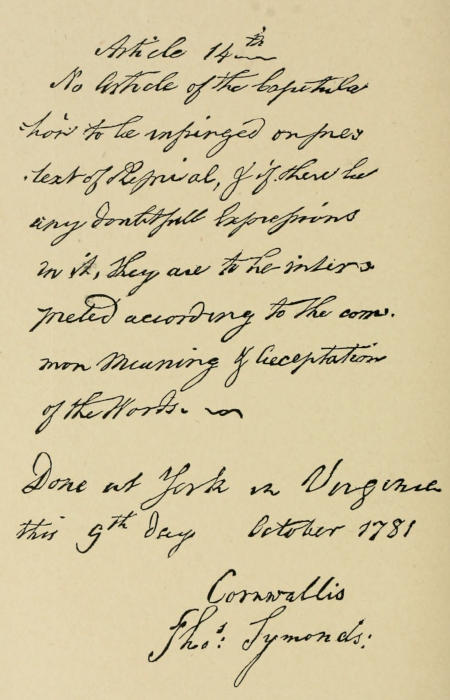 Article 14th
No Article of the Capitula
tion to be infringed on pre
text of Reprisal, & if there be
any doubtfull Expressions
in it, they are to be inter
preted according to the com
mon Meaning & Acceptation
of the Words.
Done at York in Virginia
this 9th day October 1781
Cornwallis
Thos: Symonds: